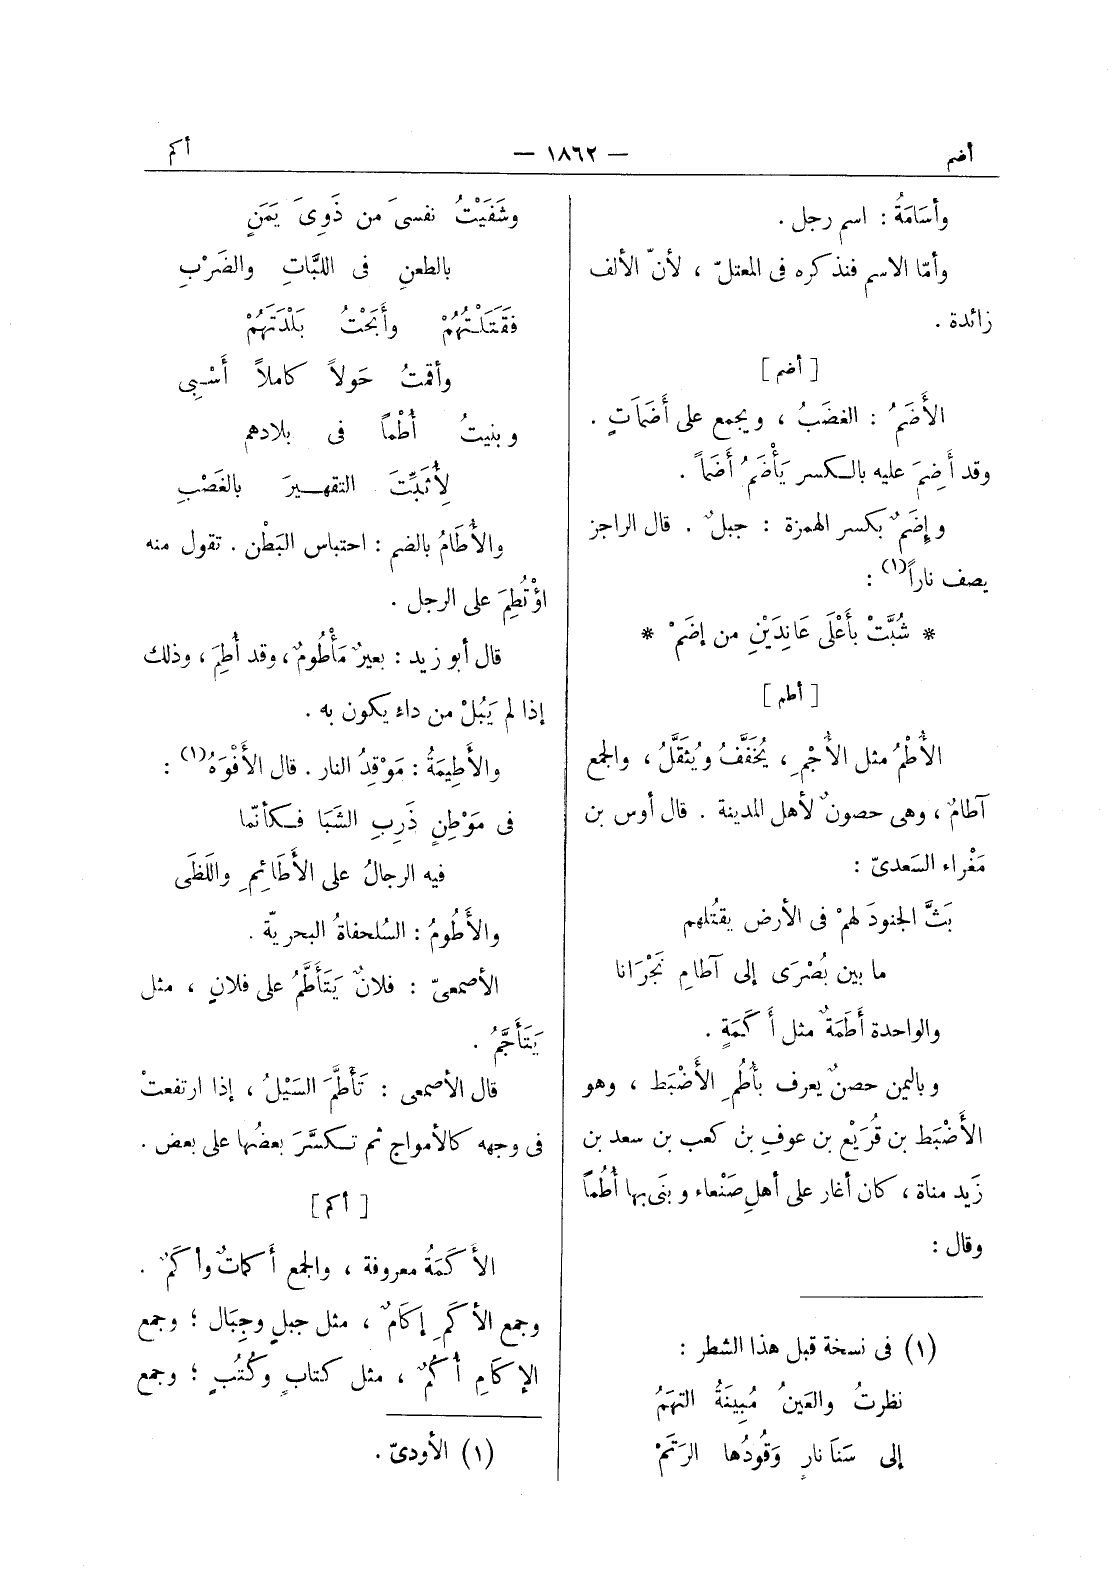 أضم
— ١٨٦٢ —
أكم
وأسَامَةُ : اسم رجل .
وأمّا الاسم فنذكره فى المعتلّ ، لأنّ الألف
زائدة .
[ أضم ]
الأَضَمُ : الغضَبُ ، ويجمع على أَضَمَاتٍ .
وقد أَضِمَ عليه بالكسر يَأْضَمُ أَضَماً .
وإِضَمٌ بكسر الهمزة : جبلٌ . قال الراجز
يصف ناراً(١) :
* شُبَّتْ بأَعْلَى عَانِدَيْنِ من إضَمْ *
[ أطم ]
الأُطْمُ مثل الأُجْمِ ، يُخَفَّفُ ويُثَقَّلُ ، والجمع
آطامٌ ، وهى حصونٌ لأهل المدينة . قال أوس بن
مَغْراء السَعدىّ :
بَثَّ الجنودَ لهمْ فى الأرض يقتُلهم
ما بين بُصْرَى إلى آطامِ نَجْرَانا
والواحدة أَطَمَةٌ مثل أَكَمَةٍ .
وباليمن حصنٌ يعرف بأُطُمِ الأَضْبَط ، وهو
الأَضْبَط بن قُرَيْع بن عوفِ بن كعب بن سعد بن
زَيد مناة ، كان أغار على أهلِ صَنْعاء وبنَى بها أُطُماً
وقال :
(١) فى نسخة قبل هذا الشطر :
نظرتُ والعَينُ مُبِينَةُ التهَمُ
إلى سَنَا نارٍ وَقُودُها الرَتَمْ
وشَفَيْتُ نفسىَ من ذَوِىَ يَمَنٍ
بالطعنِ فى اللبَّاتِ والضَرْبِ
فقَتَلْتُهُمْ وأَبَحْتُ بَلْدَتَهُمْ
وأقمتُ حَولاً كاملاً أَسْبِى
وبنيتُ أُطْماً فى بلادهم
لِأُثَبِّتَ التقهيرَ بالغَصْبِ
والأُطَامُ بالضم : احتباس البَطْن . تقول منه
اؤْتُطِمَ على الرجل .
قال أبو زيد : بعيرٌ مَأْطُومٌ ، وقد أُطِمَ ، وذلك
إذا لم يَبُلْ من داء يكون به .
والأَطِيمَةُ : مَوْقِدُ النار . قال الأَفْوَهُ(١) :
فى مَوْطِنٍ ذَرِبِ الشَبَا فكأنّما
فيه الرجالُ على الأَطَائِمِ واللَظَى
والأَطُومُ : السُلحفاةُ البحريّة .
الأصمعىّ : فلانٌ يَتَأَطَّمُ على فلانٍ ، مثل
يَتَأَجَّمُ .
قال الأصمعى : تَأَطَّمَ السَيْلُ ، إذا ارتفعتْ
فى وجهه كالأمواج ثم تكسَّرَ بعضُها على بعض .
[ أكم ]
الأَكَمَةُ معروفة ، والجمع أَكَماتٌ وأَكَمٌ .
وجمع الأَكَمِ إكَامٌ ، مثل جبلٍ وجِبَال ؛ وجمع
الإكَامِ أُكُمٌ ، مثل كتابٍ وكُتُبٍ ؛ وجمع
(١) الأودىّ .